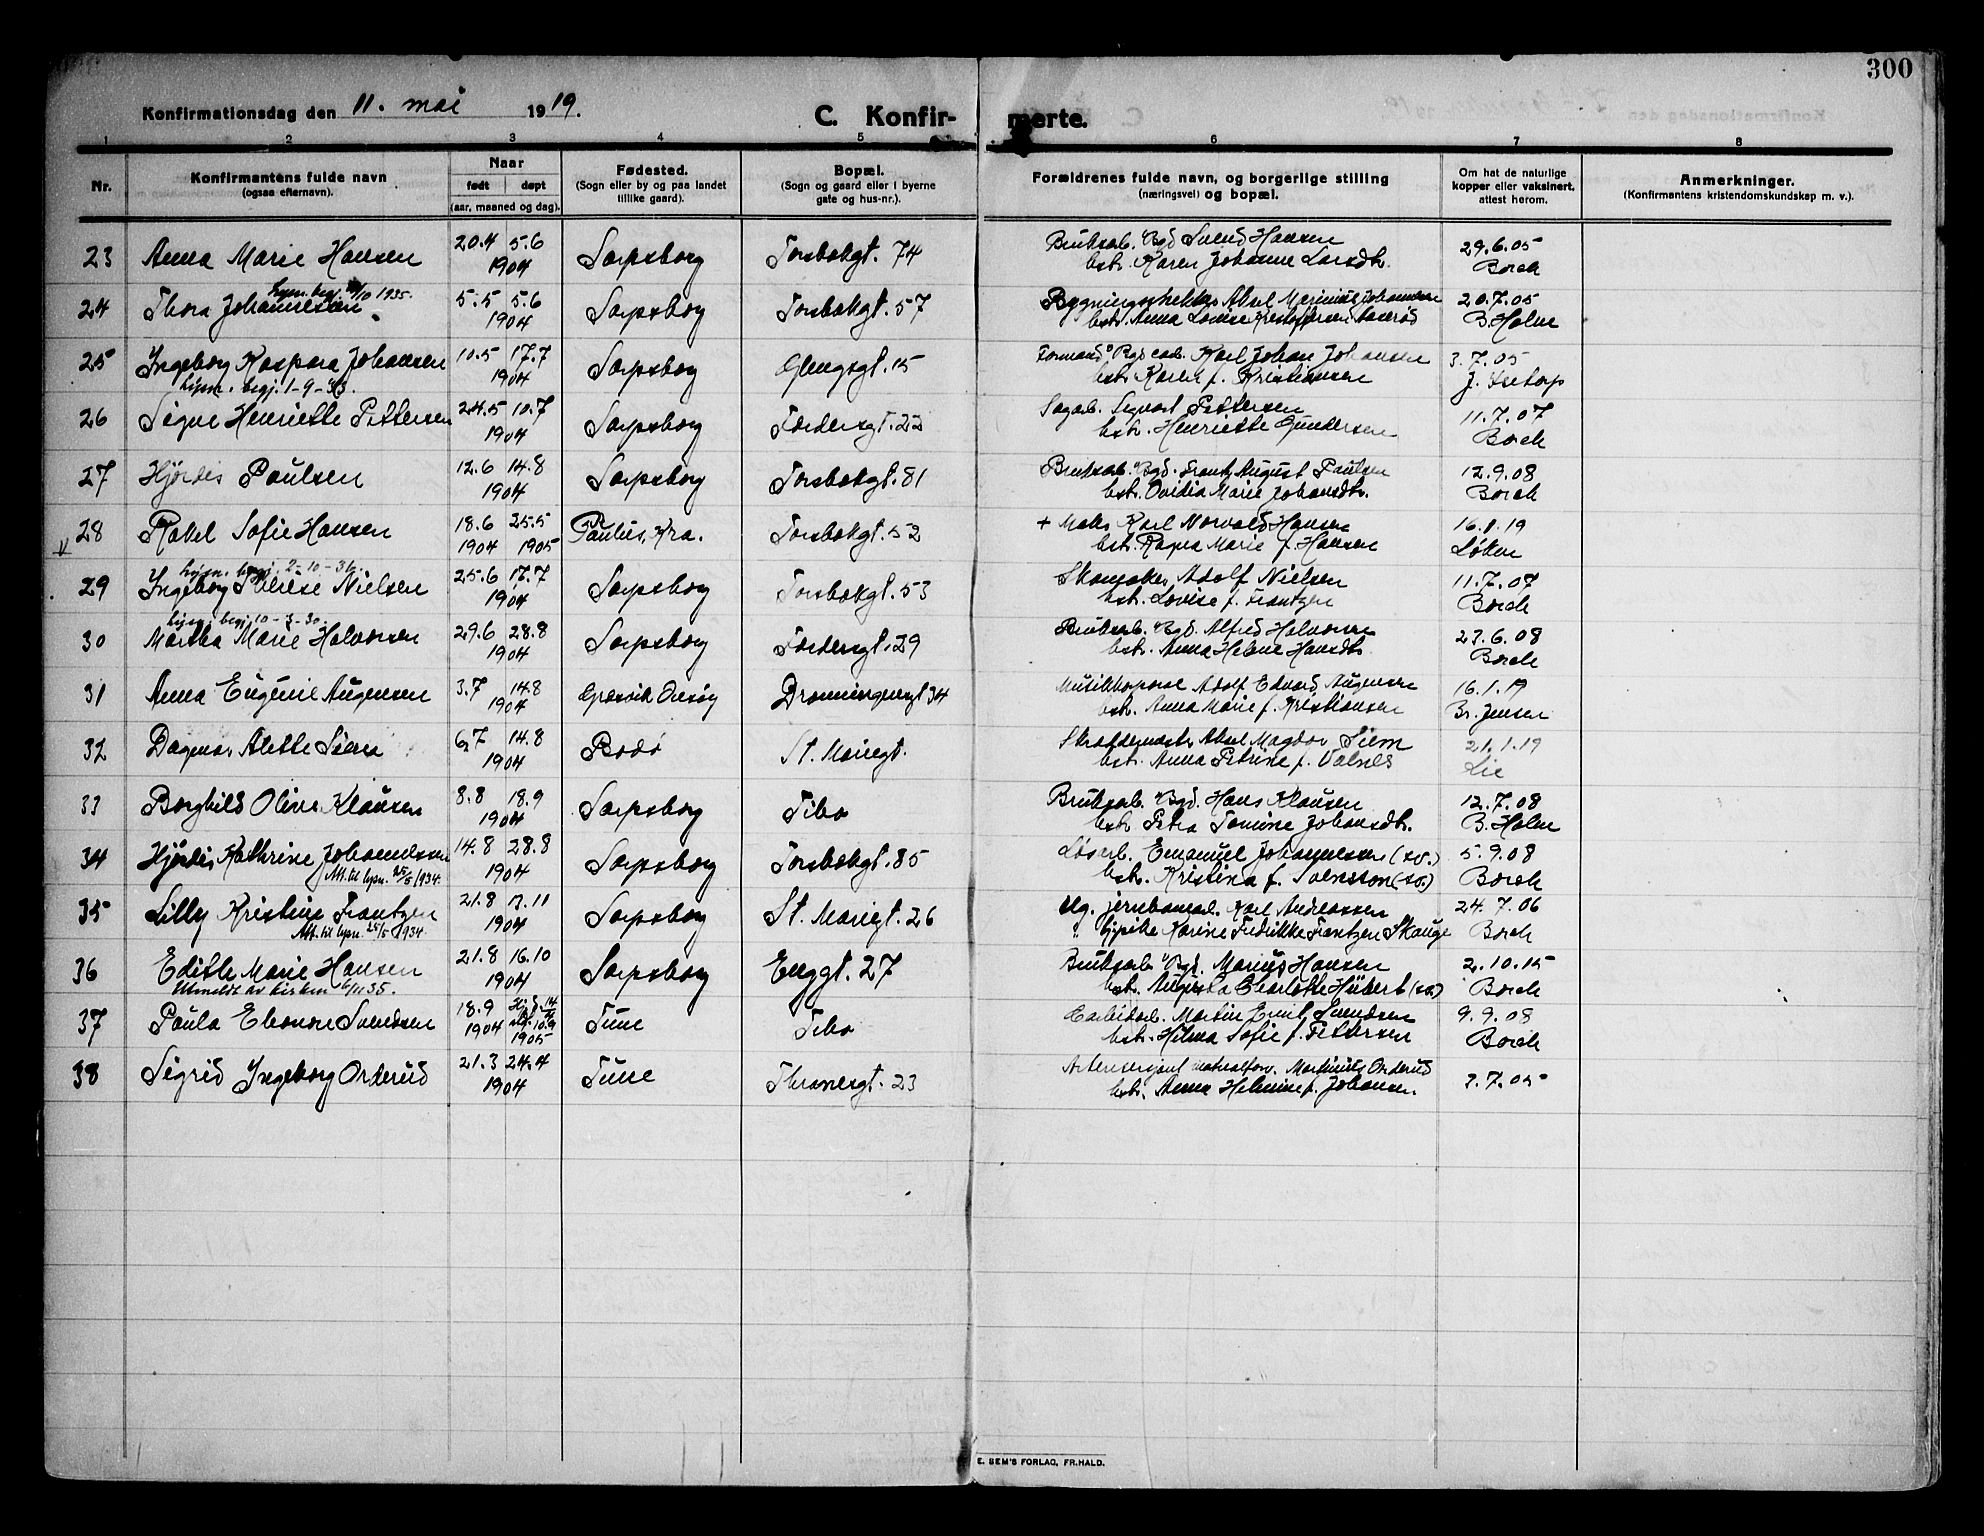 300
Konfirmationsdag den 11. mai 1919.
C. Konfirmerte.
1 2 3 4 5 6 7 8
Nr.
Konfirmantens fulde navn
(ogsaa efternavn).
Naar
født døpt
(aar, maaned og dag).
Fødested.
(Sogn eller by og paa landet
tillike gaard).
Bopæl.
(Sogn og gaard eller i byerne
gate og hus-nr.).
Forældrenes fulde navn, og borgerlige stilling
(næringsvei) og bopæl.
Om hat de naturlige
kopper eller vaksinert,
attest herom.
Anmerkninger.
(Konfirmantens kristendomskundskap m. v.).
23 Anna Marie Hansen 20.4 5.6 1904 Sarpsborg Torsbekgt. 74 Bruksarb. Bgd Svend Hansen 29.6.05
hstr. Karen Johanne Larsdtr. Borch
lysn. begj. /10 1935.
24 Thora Johannesen 5.5 5.6 1904 Sarpsborg Torsbekgt. 57 Aksel Marinius Johannesen 20.7.05
hstr. Anna Lovise Kristoffersen B. Holm
25 Ingeborg Kaspara Johansen 10.5 17.7 1904 Sarpsborg Glengsgt. 15 Formand Karl Johan Johansen 3.7.05
lysn. begj. 1-9-43.
hstr. Karen f. Kristiansen
26 Signe Henriette Pettersen 24.5 10.7 1904 Sarpsborg Tordersgt. 22 Sagarb. Sigvart Pettersen 11.7.07
hstr. Henriette Gundersen Borch
27 Hjørdis Paulsen 12.6 14.8 1904 Sarpsborg Torsbekgt. 81 Bruksarb. Bgd. Frantz August Paulsen 12.9.08
hstr. Ovidia Marie Johansdtr. Borch
28 Rakel Sofie Hansen 18.6 25.5 1904 1905 Paulus, Kra. Torsbekgt. 52 + Maler Karl Norvald Hansen 16.1.19
hstr. Ragna Marie f. Hansen Løken
lysn. begj. 2-10-31.
29 Ingeborg Therese Nielsen 25.6 17.7 1904 Sarpsborg Torsbekgt. 53 Skomaker Adolf Nielsen 11.7.07
hstr. Lovise f. Frantzen Borch
lysn. begj. 10-3-30.
30 Martha Marie Halvorsen 29.6 28.8 1904 Sarpsborg Tordersgt. 29 Bruksarb. Bgd. Alfred Halvorsen 27.6.08
hstr. Anna Helene Hansdtr. Borch
31 Anna Eugenie Augensen 3.7 14.8 1904 Gresvik Onsøy Dronningensgt 34 Musikkorporal Adolf Edvard Augensen 16.1.19
hstr. Anna Marie f. Kristiansen Br. Jensen
32 Dagmar Alette Siem 6.7 14.8 1904 Bodø St. Mariegt. Skræddermester Aksel Magdor Siem 21.1.19
hstr. Anna Petrine f. Valnes Lie
33 Borghild Oliva Klausen 8.8 18.9 1904 Sarpsborg Tibo Bruksarb. Bgd. Hans Klausen 12.7.08
hstr. Petra Tomine Johansdtr. B. Holm
34 Hjørdis Kathrine Johannessen 14.8 28.8 1904 Sarpsborg Torsbekgt. 85 Løsarb. Emanuel Johannesen (sv.) 5.9.08
Att. til lysn. 25/5 1934.
hstr. Kristina f. Svensson (sv.) Borch
35 Lilly Kristine Frantzen 21.8 13.11 1904 Sarpsborg St. Mariegt. 26 Ug. jernbanearb. Karl Andreassen 24.7.06
Att. til lysn. 25/5 1934.
" Karine Fredrikke Frantzen Skauge Borch
36 Edith Marie Hansen 21.8 16.10 1904 Sarpsborg Enggt. 27 Bruksarb. Bgd. Marius Hansen 2.10.15
Utmeldt av kirken 6/11 35.
hstr. Augusta Charlotte Hübert (sv.) Borch
37 Paula Eleonore Svendsen 18.9 1904 1905 Tune Tibo Carbidarb. Martin Emil Svendsen 9.9.08
hstr. Hilma Sofie f. Pettersen Borch
38 Sigrid Ingeborg Orderud 21.3 24.4 1904 Tune Thranesgt. 23 Martinius Orderud 7.7.05
hstr. Anna Helmine f. Johansen.
E. SEM'S FORLAG, FR.HALD.